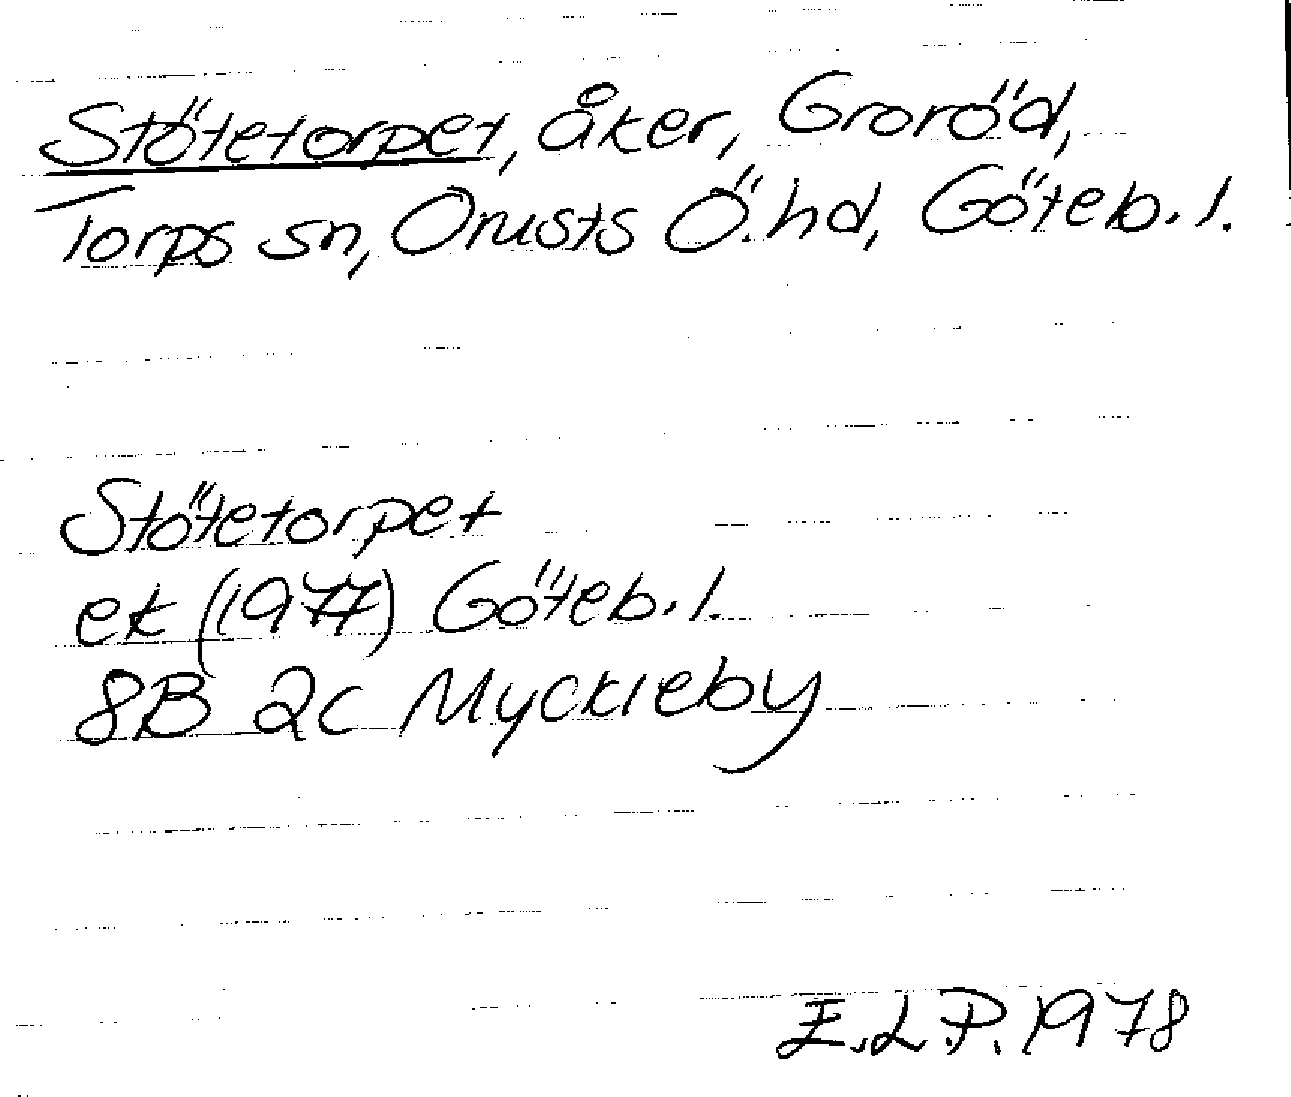 Stötetorpet, åker, Groröd,
Torps sn, Orusts Ö. hd, Göteb. l.
Stötetorpet
ek (1977) Göteb. l.
8B 2c Myckleby
E.L.P. 1978